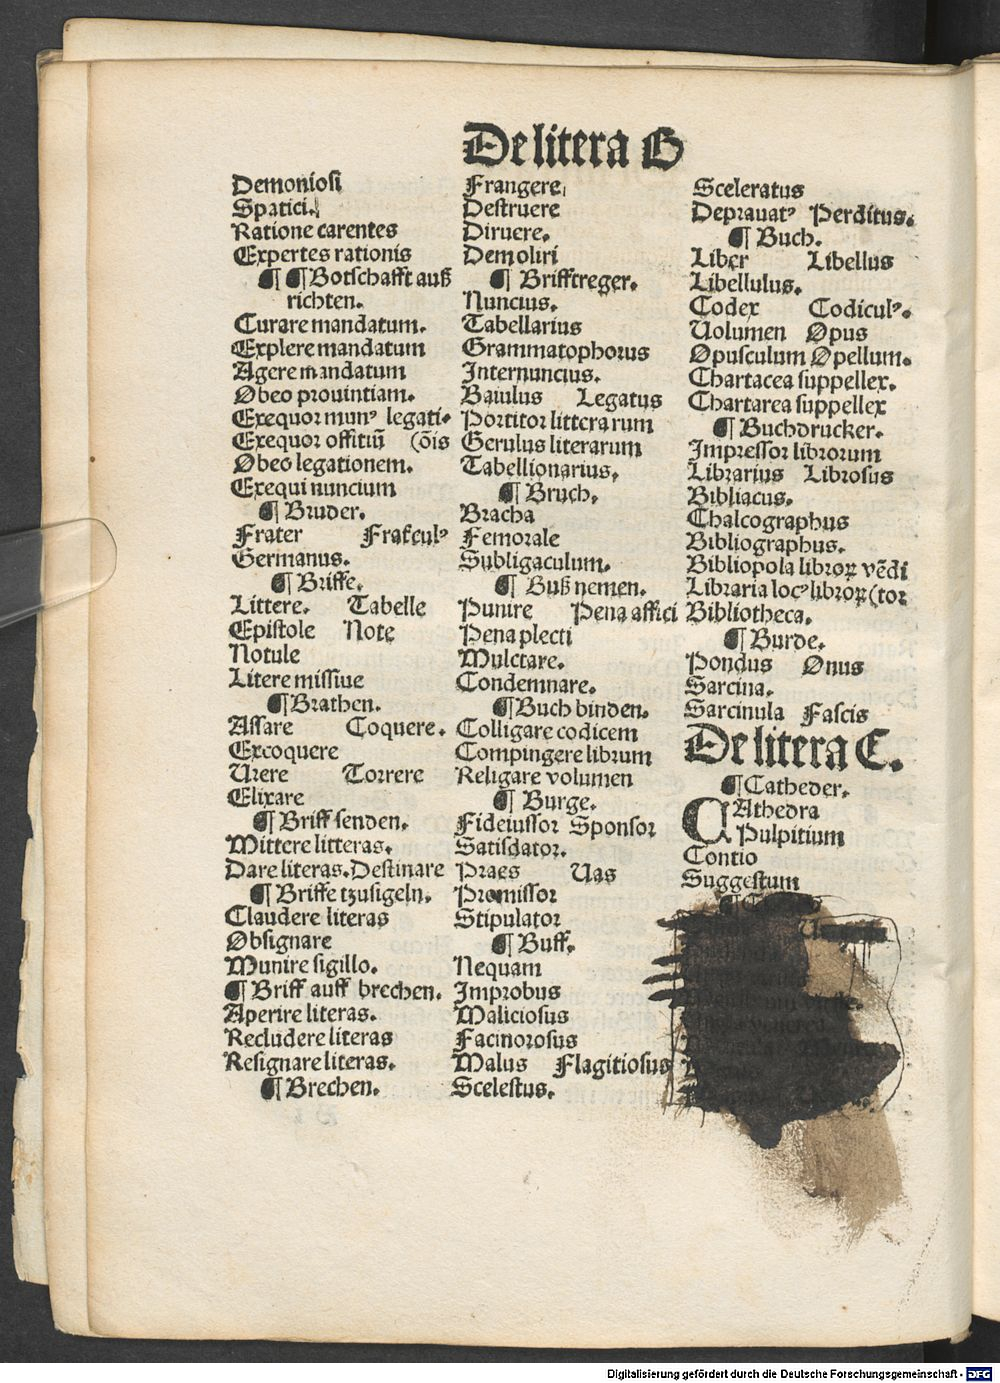 De litera B
Demoniosi
Spatici.
Ratione carentes
Expertes rationis
¶ ¶ Botschafft auß
richten.
Curare mandatum.
Explere mandatum
Agere mandatum
Obeo prouintiam.
Exequor munꝰ legati-
Exequor offitiū (ōis
Obeo legationem.
Exequi nuncium
¶ Bruder.
Frater Fratculꝰ
Germanus.
¶ Briffe.
Littere. Tabelle
Epistole Note
Notule
Litere missiue
¶ Brathen.
Assare Coquere.
Excoquere
Urere Torrere
Elixare
¶ Briff senden.
Mittere litteras.
Dare literas. Destinare
¶ Briffe tzusigeln.
Claudere literas
Obsignare
Munire sigillo.
¶ Briff auff brechen.
Aperire literas.
Recludere literas
Resignare literas.
¶ Brechen.
Frangere
Destruere
Diruere.
Demoliri
¶ Brifftreger.
Nuncius.
Tabellarius
Grammatophorus
Internuncius.
Baiulus Legatus
Portitor litterarum
Gerulus literarum
Tabellionarius.
¶ Bruch.
Bracha
Femorale
Subligaculum.
¶ Buß nemen.
Punire Pena affici
Pena plecti
Mulctare.
Condemnare.
¶ Buch binden.
Colligare codicem
Compingere librum
Religare volumen
¶ Burge.
Fideiussor Sponsor
Satisdator.
Praes Uas
Promissor
Stipulator
¶ Buff.
Nequam
Improbus
Maliciosus
Facinorosus
Malus Flagitiosus
Scelestus.
Sceleratus
Deprauatꝰ Perditus.
¶ Buch.
Liber Libellus
Libellulus.
Codex Codiculꝰ.
Uolumen Opus
Opusculum Opellum.
Chartacea suppellex.
Chartarea suppellex
¶ Buchdrucker.
Impressor librorum
Librarius Librosus
Bibliacus.
Chalcographus
Bibliographus.
Bibliopola libroꝝ vēdi
Libraria locꝰ libroꝝ (tor
Bibliotheca.
¶ Burde.
Pondus Onus
Sarcina.
Sarcinula Fascis
De litera C.
¶ Catheder.
CAthedra
Pulpitium
Contio
Suggestum
Digitalisierung gefördert durch die Deutsche Forschungsgemeinschaft - DFG